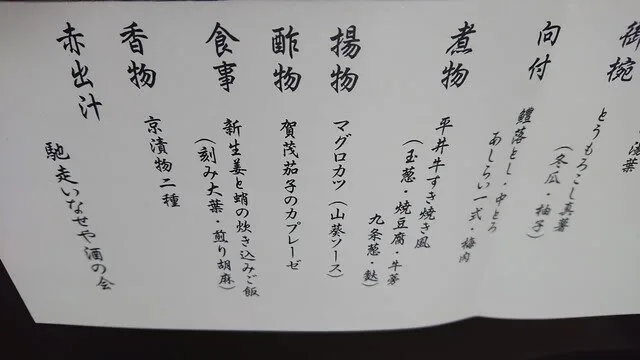 御椀
とうもろこし真薯
(冬瓜・柚子)
向付
鱧落とし・中とろ
あしらい一式・梅肉
煮物
平井牛すき焼き風
(玉葱・焼豆腐・牛蒡
九条葱・麩)
揚物
マグロカツ(山葵ソース)
酢物
賀茂茄子のカプレーゼ
食事
新生姜と蛸の炊き込みご飯
(刻み大葉・煎り胡麻)
香物
京漬物二種
赤出汁
馳走いなせや酒の会